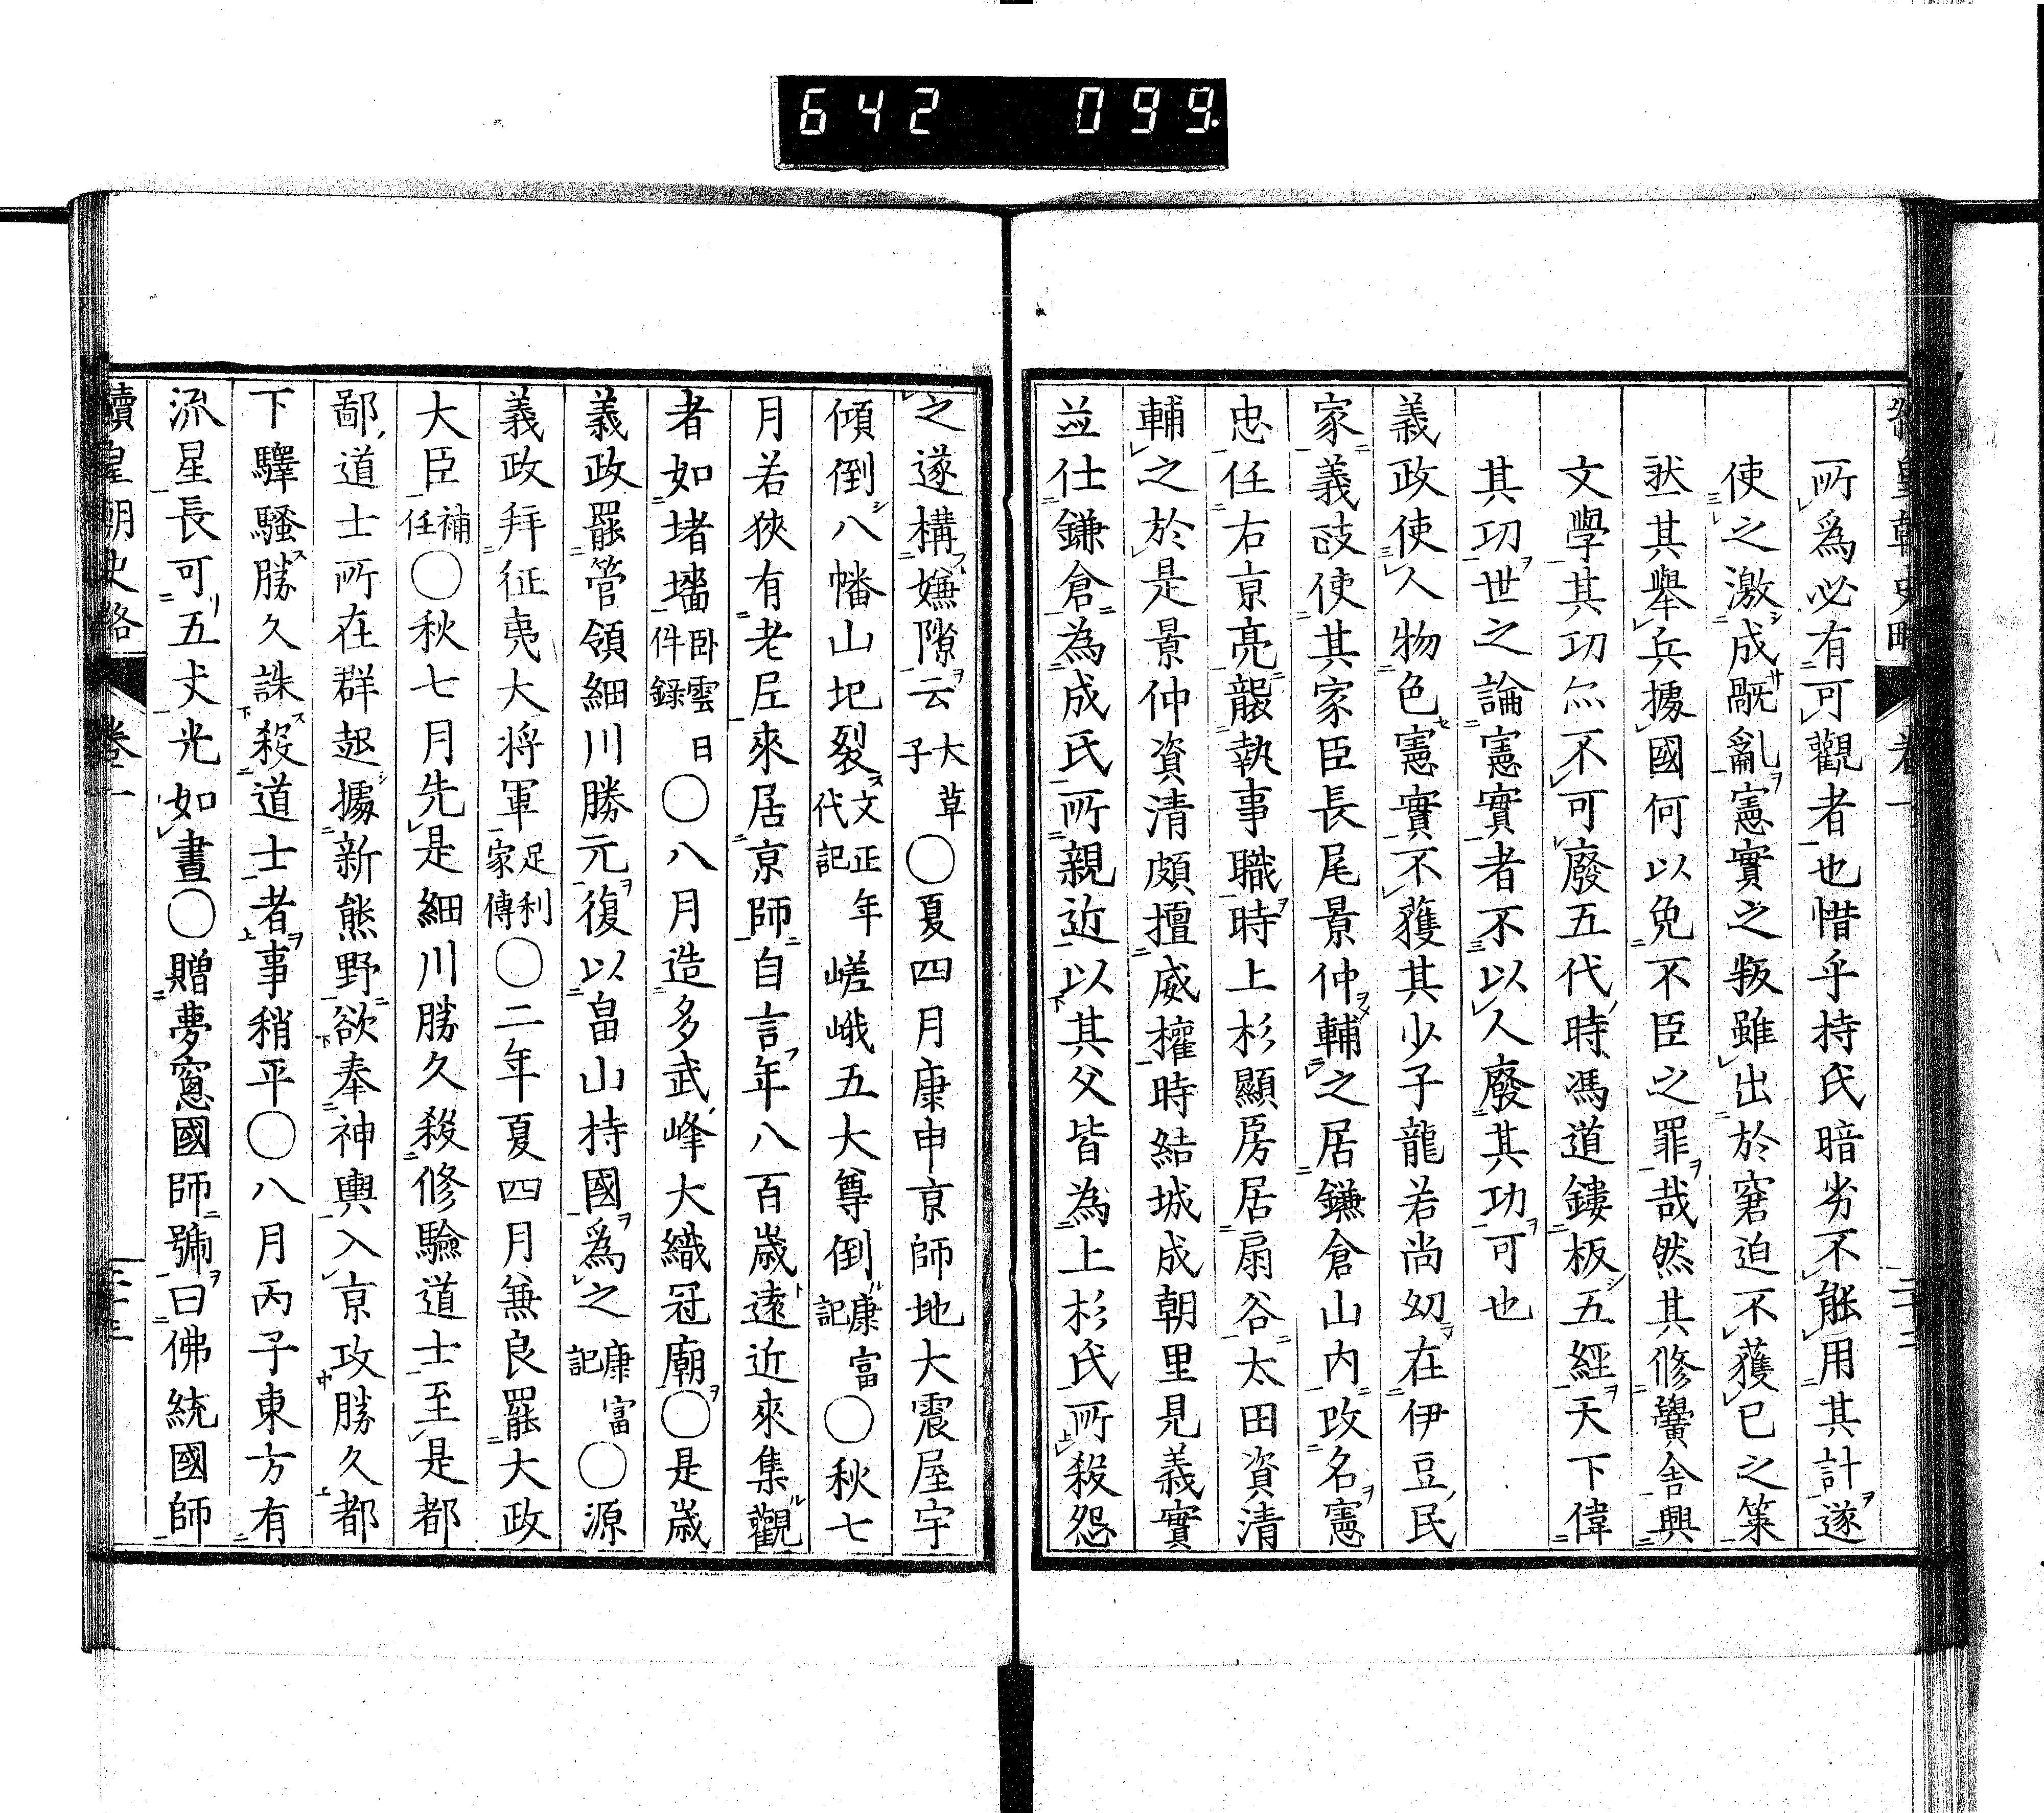 642 099
續皇朝史略 卷一
所為必有可觀者也惜乎持氏暗劣不能用其計遂
使之激成厩亂憲實之叛雖出於窘迫不獲已之策
然其舉兵據國何以免不臣之罪哉然其修黌舍興
文學其功亦不可廢五代時馮道鏤板五經天下偉
其功世之論憲實者不以人廢其功可也
義政使人物色憲實不獲其少子龍若尚幼在伊豆民
家義政使其家臣長尾景仲輔之居鎌倉山内改名憲
忠任右京亮襲執事職時上杉顯房居扇谷太田資清
輔之於是景仲資清頗擅威權時結城成朝里見義實
並仕鎌倉為成氏所親近以其父皆為上杉氏所殺怨
之遂構嫌隙云大草子〇夏四月康申京師地大震屋宇
傾倒八幡山圯裂文正年代記嵯峨五大尊倒康富記〇秋七
月若狹有老尼來居京師自言年八百歲遠近來集觀
者如堵墻臥雲日件錄〇八月造多武峰大織冠廟〇是歲
義政罷管領細川勝元復以畠山持國爲之康富記〇源
義政拜征夷大將軍足利家傳〇二年夏四月兼良罷大政
大臣補任〇秋七月先是細川勝久殺修驗道士至是都
鄙道士所在群起據新熊野欲奉神輿入京攻勝久都
下驛騷勝久誅殺道士者事稍平〇八月丙子東方有
流星長可五丈光如晝〇贈夢窻國師號曰佛統國師
續皇朝史略 卷一